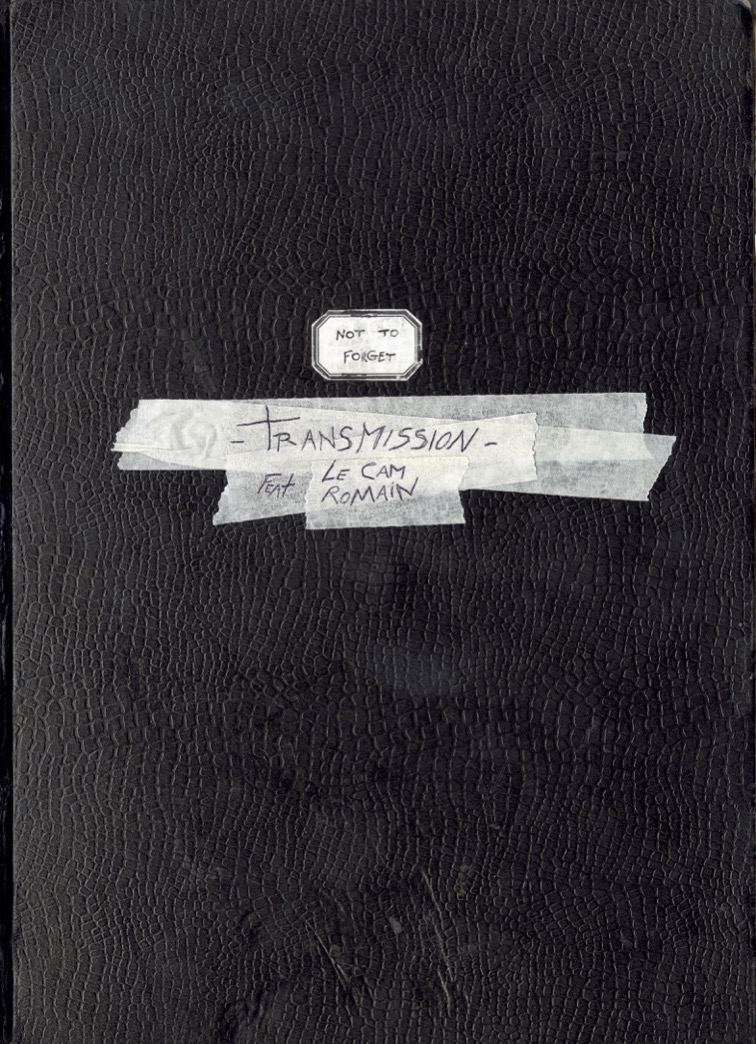 NOT TO
FORGET
- TRANSMISSION -
FEAT LE CAM
ROMAIN